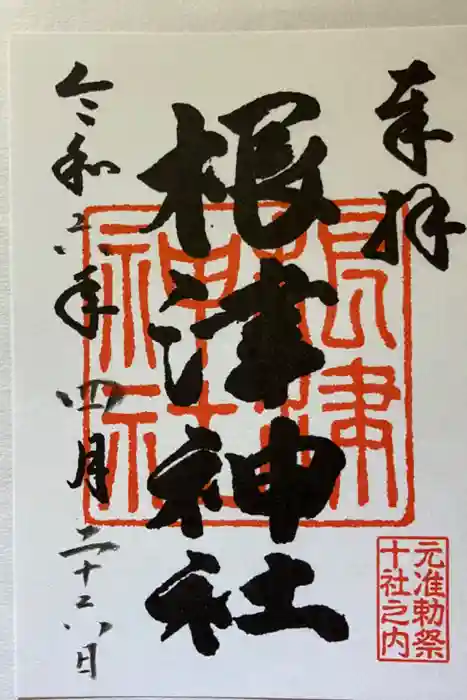 奉拝
根津神社
令和六年四月二十六日
根津神社
元准勅祭
十社之内